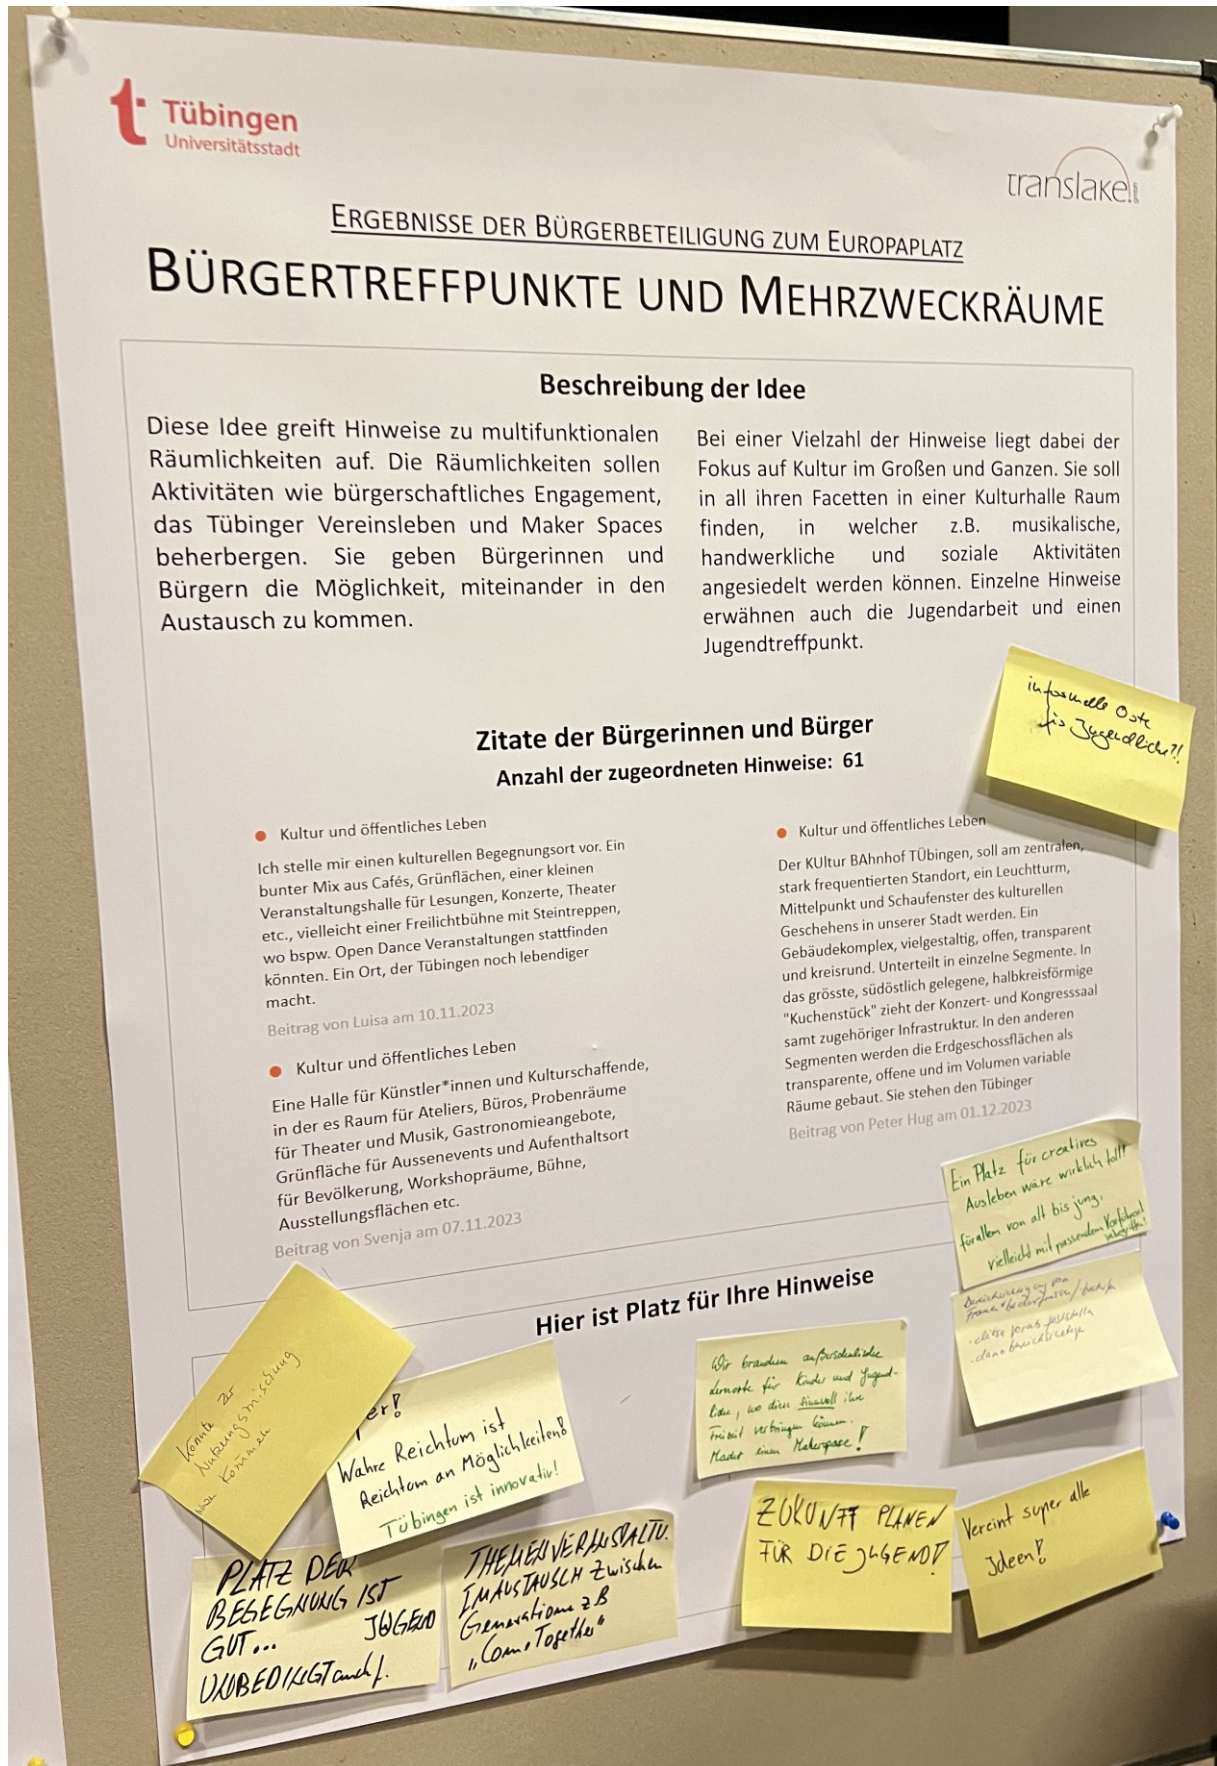 Tübingen
Universitätsstadt
translake
ERGEBNISSE DER BÜRGERBETEILIGUNG ZUM EUROPAPLATZ
BÜRGERTREFFPUNKTE UND MEHRZWECKRÄUME
Beschreibung der Idee
Diese Idee greift Hinweise zu multifunktionalen
Räumlichkeiten auf. Die Räumlichkeiten sollen
Aktivitäten wie bürgerschaftliches Engagement,
das Tübinger Vereinsleben und Maker Spaces
beherbergen. Sie geben Bürgerinnen und
Bürgern die Möglichkeit, miteinander in den
Austausch zu kommen.
Bei einer Vielzahl der Hinweise liegt dabei der
Fokus auf Kultur im Großen und Ganzen. Sie soll
in all ihren Facetten in einer Kulturhalle Raum
finden, in welcher z.B. musikalische,
handwerkliche und soziale Aktivitäten
angesiedelt werden können. Einzelne Hinweise
erwähnen auch die Jugendarbeit und einen
Jugendtreffpunkt.
informelle Orte
für Jugendliche?!
Zitate der Bürgerinnen und Bürger
Anzahl der zugeordneten Hinweise: 61
Kultur und öffentliches Leben
Ich stelle mir einen kulturellen Begegnungsort vor. Ein
bunter Mix aus Cafés, Grünflächen, einer kleinen
Veranstaltungshalle für Lesungen, Konzerte, Theater
etc., vielleicht einer Freilichtbühne mit Steintreppen,
wo bspw. Open Dance Veranstaltungen stattfinden
könnten. Ein Ort, der Tübingen noch lebendiger
macht.
Beitrag von Luisa am 10.11.2023
Kultur und öffentliches Leben
Eine Halle für Künstler*innen und Kulturschaffende,
in der es Raum für Ateliers, Büros, Probenräume
für Theater und Musik, Gastronomieangebote,
Grünfläche für Aussenevents und Aufenthaltsort
für Bevölkerung, Workshopräume, Bühne,
Ausstellungsflächen etc.
Beitrag von Svenja am 07.11.2023
Kultur und öffentliches Leben
Der KUltur BAhnhof TÜbingen, soll am zentralen,
stark frequentierten Standort, ein Leuchtturm,
Mittelpunkt und Schaufenster des kulturellen
Geschehens in unserer Stadt werden. Ein
Gebäudekomplex, vielgestaltig, offen, transparent
und kreisrund. Unterteilt in einzelne Segmente. In
das grösste, südöstlich gelegene, halbkreisförmige
"Kuchenstück" zieht der Konzert- und Kongresssaal
samt zugehöriger Infrastruktur. In den anderen
Segmenten werden die Erdgeschossflächen als
transparente, offene und im Volumen variable
Räume gebaut. Sie stehen den Tübinger
Beitrag von Peter Hug am 01.12.2023
Ein Platz für creatives
Ausleben wäre wirklich toll!
förallem von alt bis jung,
vielleicht mit passendem
Hier ist Platz für Ihre Hinweise
Berücksichtigung von
Frauen*bedürfnissen/
- diese vorab feststellen
- dann berücksichtigen
Könnte zur
Nutzungsmischung
kommen
er!
Wahre Reichtum ist
Reichtum an Möglichkeiten!
Tübingen ist innovativ!
Wir brauchen außerschulische
Lernorte für Kinder und Jugend-
liche, wo diese sinnvoll ihre
Freizeit verbringen können.
Macht einen Makerspace!
PLATZ DER
BEGEGNUNG IST
GUT... JUGEND
UNBEDINGT auch!
THEMENVERANSTALTU.
IM AUSTAUSCH zwischen
Generationen z B
„Come Together“
ZUKUNFT PLANEN
FÜR DIE JUGEND!
Vereint super alle
Ideen!